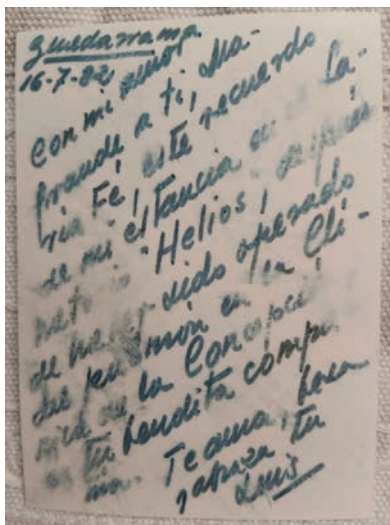 Guadarrama
16-7-82
Con mi amor
grande a ti, Ma-
ria Fé, este recuerdo
de mi estancia en el Sa-
natorio "Helios", después
de haber sido operado
del pulmón en la Clí-
nica de la Concepci
en tu bendita compa
ñía. Te ama, besa
y abraza tu
Luis